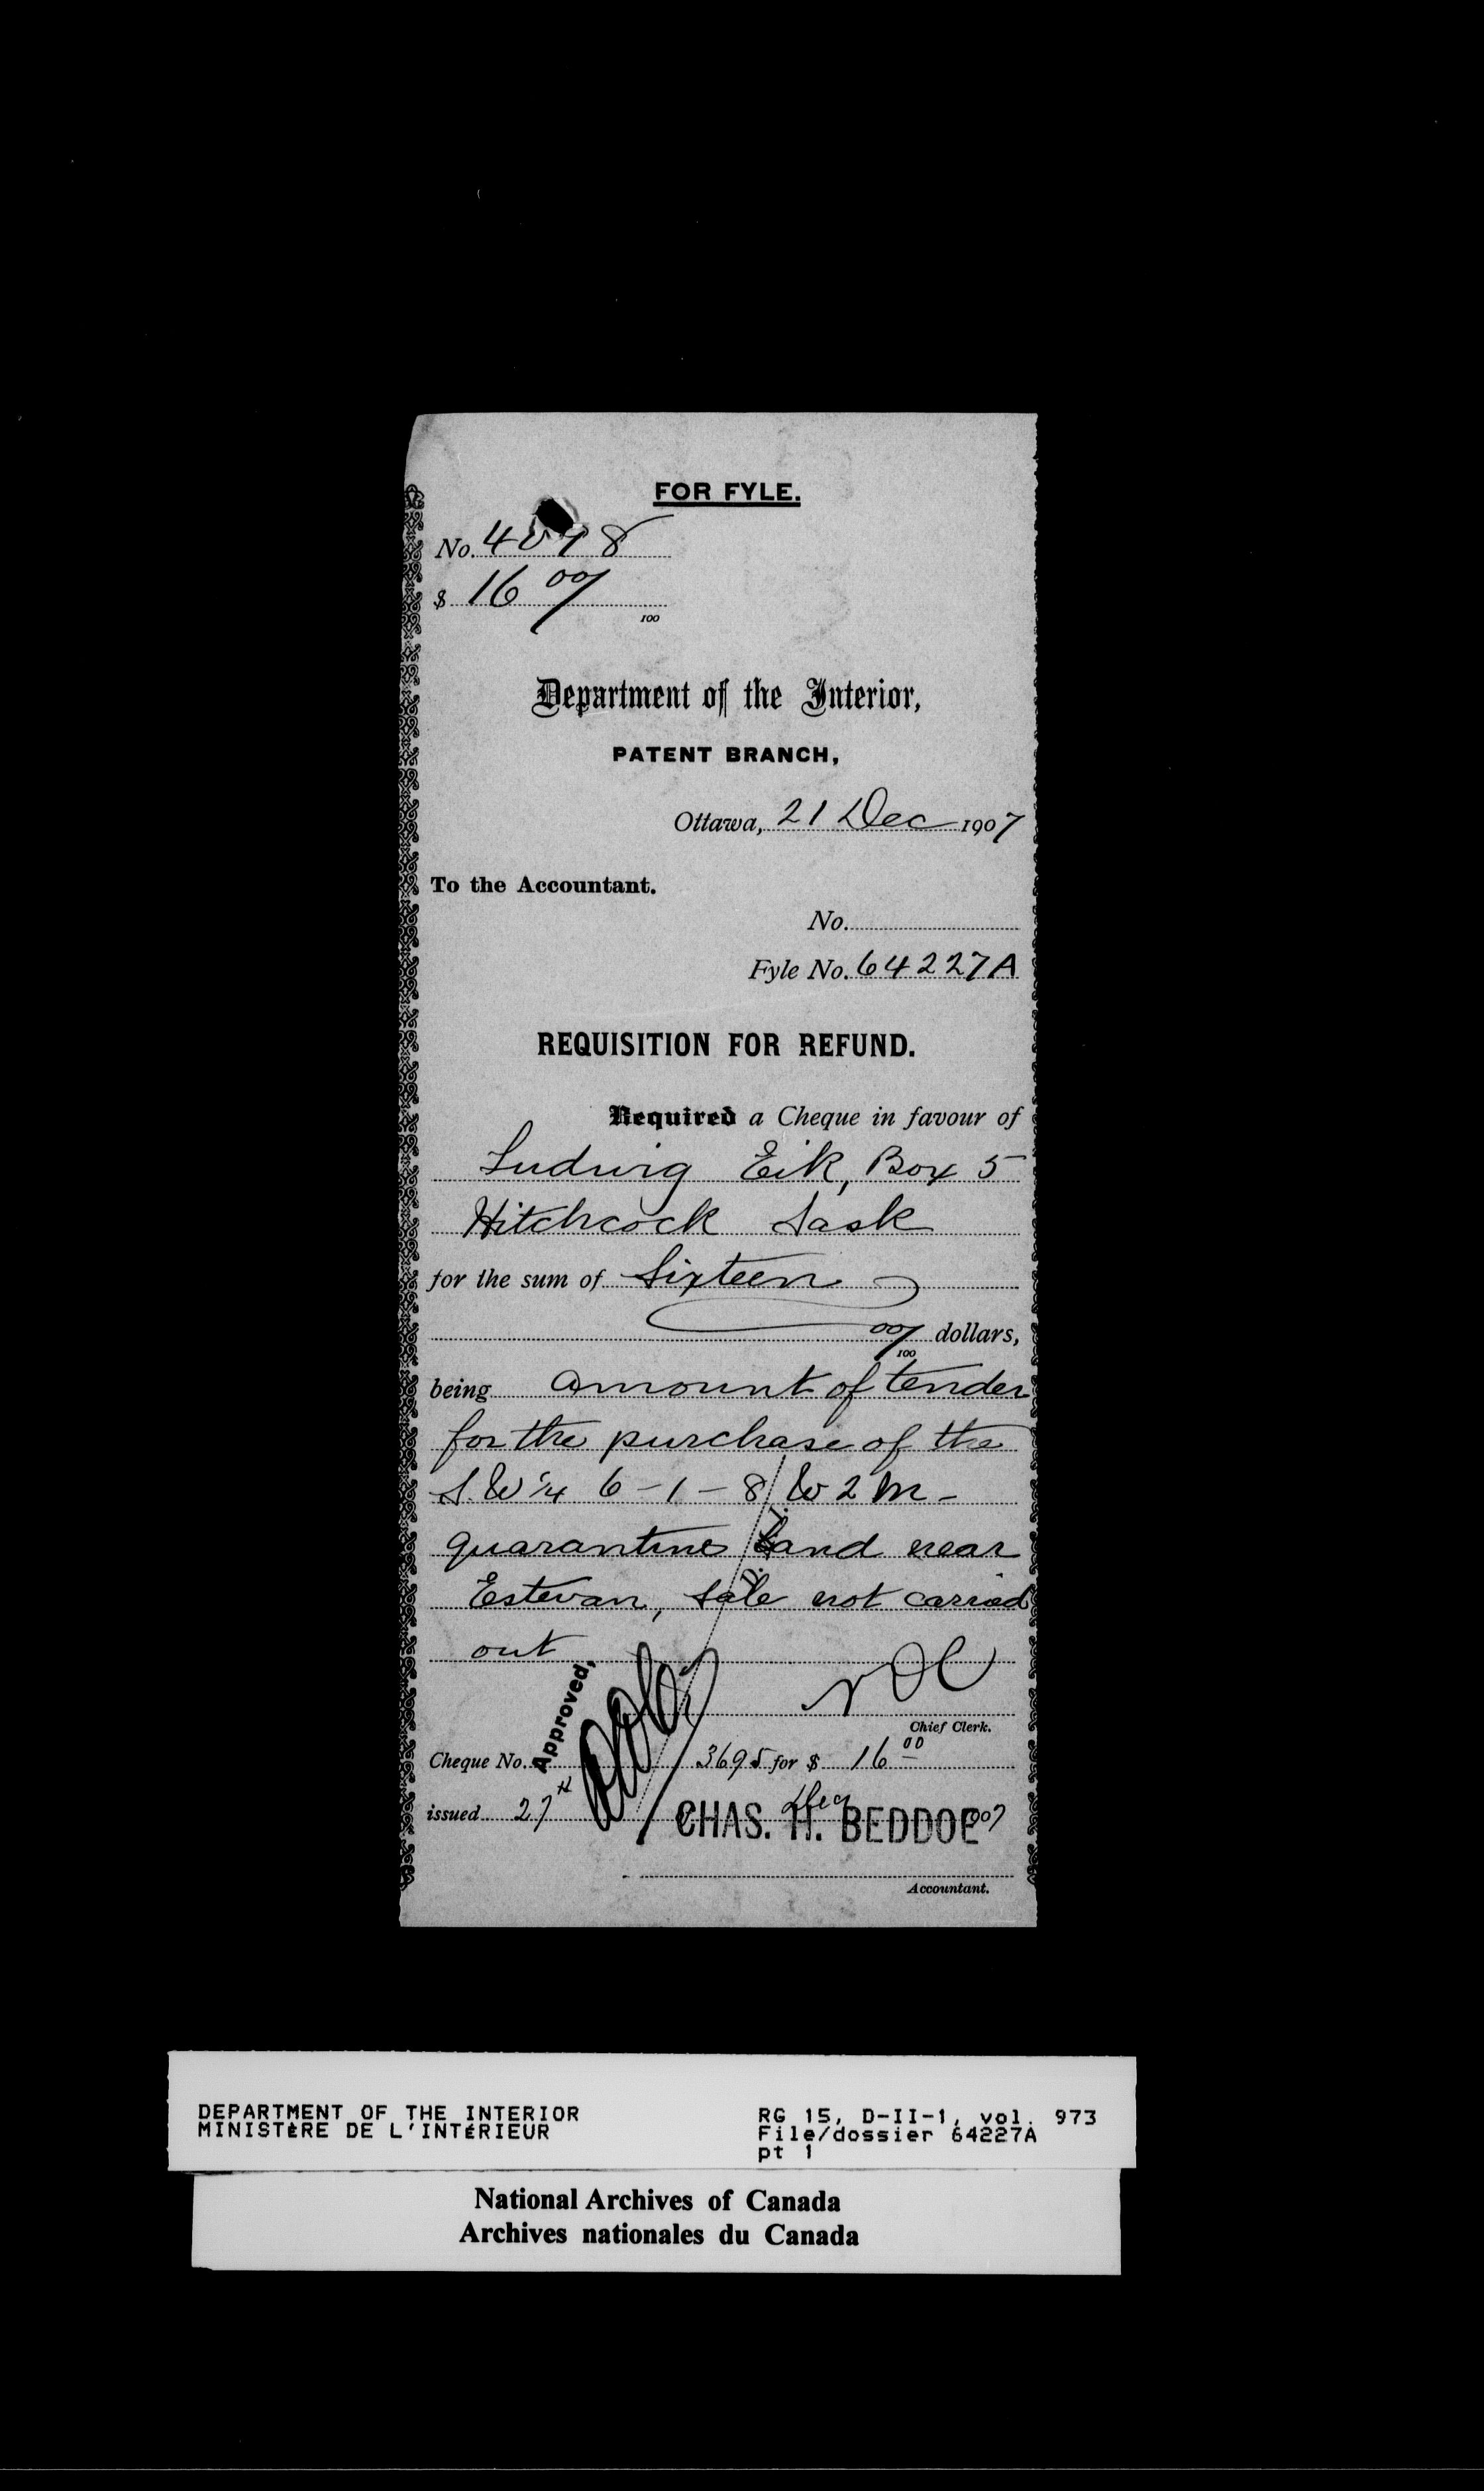 FOR FYLE.
No. 4098
$ 16 00/100
Department of the Interior,
PATENT BRANCH,
Ottawa, 21 Dec 1907
To the Accountant.
No.
Fyle No. 64227A
REQUISITION FOR REFUND.
Required a Cheque in favour of
Ludwig Eik, Box 5
Hitchcock Sask
for the sum of Sixteen
00/100 dollars,
being amount of tender
for the purchase of the
S.W 1/4 6-1-8/W 2 M-
quarantine Land near
Estevan, sale not carried
out
Approved,
Chief Clerk.
Cheque No. 3695 for $ 16 00
issued 27th Dec 1907
CHAS. H. BEDDOE
Accountant.
DEPARTMENT OF THE INTERIOR
MINISTÈRE DE L'INTÉRIEUR
RG 15, D-II-1, vol. 973
File/dossier 64227A
pt 1
National Archives of Canada
Archives nationales du Canada